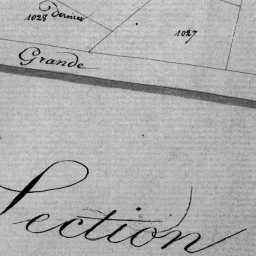 1028 dernier
1027
Grande
Section